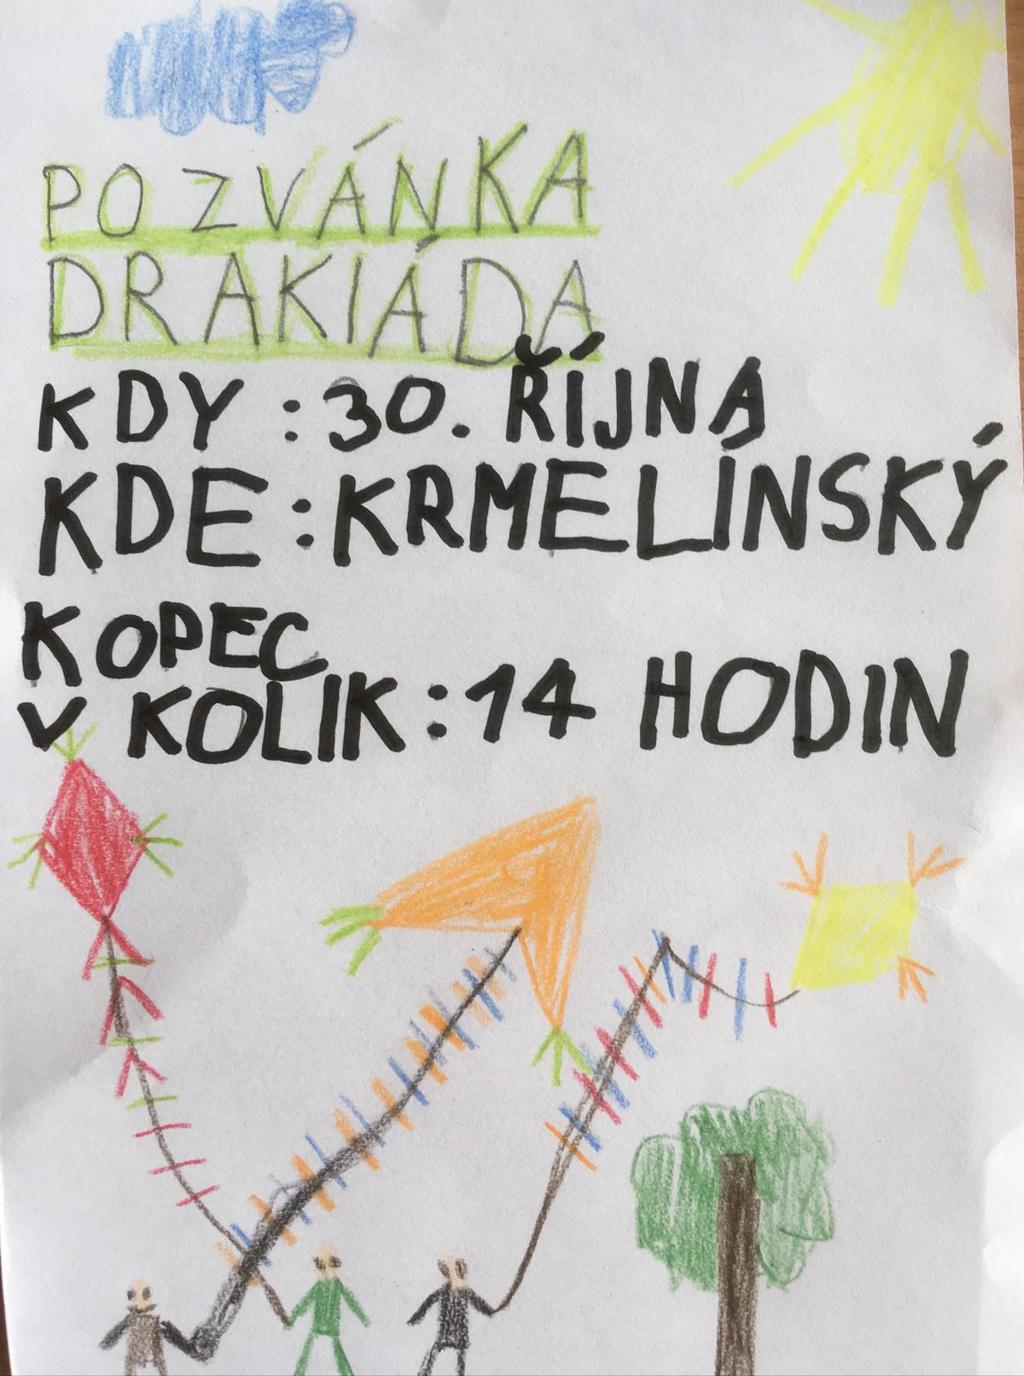 POZVÁNKA
DRAKIÁDA
KDY : 30. ŘÍJNA
KDE : KRMELÍNSKÝ
KOPEC
V KOLIK : 14 HODIN